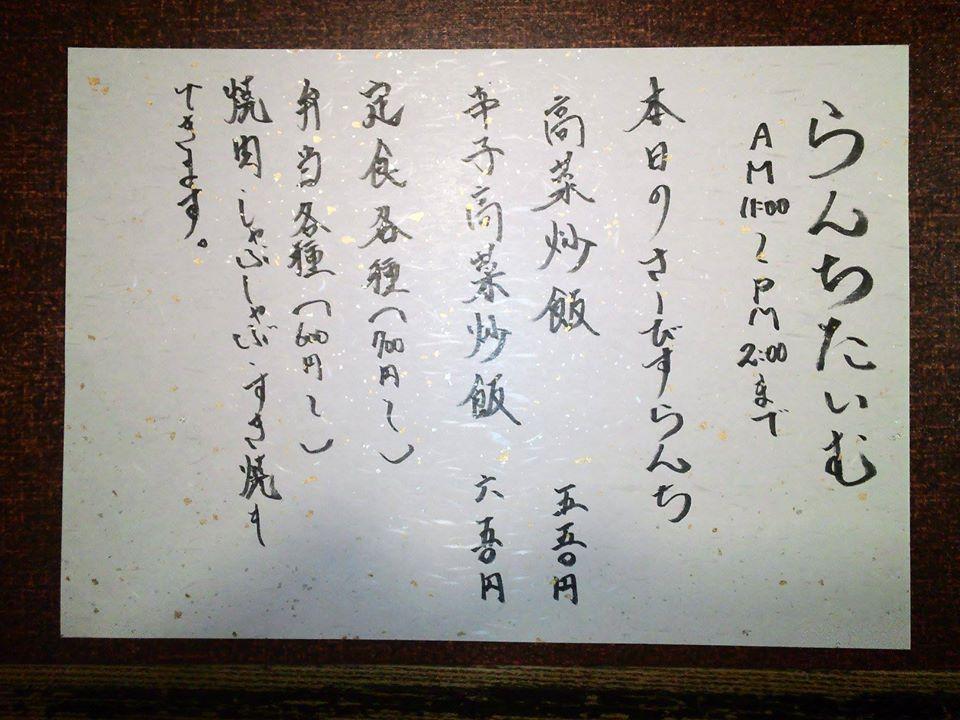 らんちたいむ
AM 11:00〜PM 2:00まで
本日のさーびすらんち
高菜炒飯 五五〇円
辛子高菜炒飯 六五〇円
定食各種(700円〜)
弁当各種(600円〜)
焼肉・しゃぶしゃぶ・すき焼も
できます。